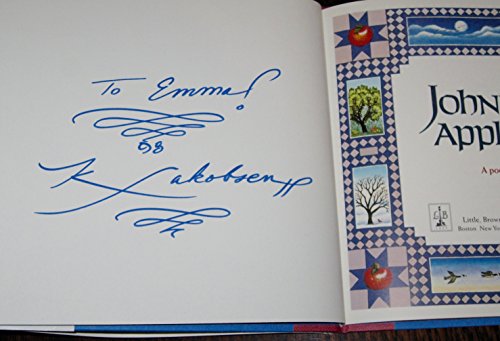 To Emma!
K Jakobsen
JOHN
APPL
A po
L B
Little, Brow
Boston New Yor